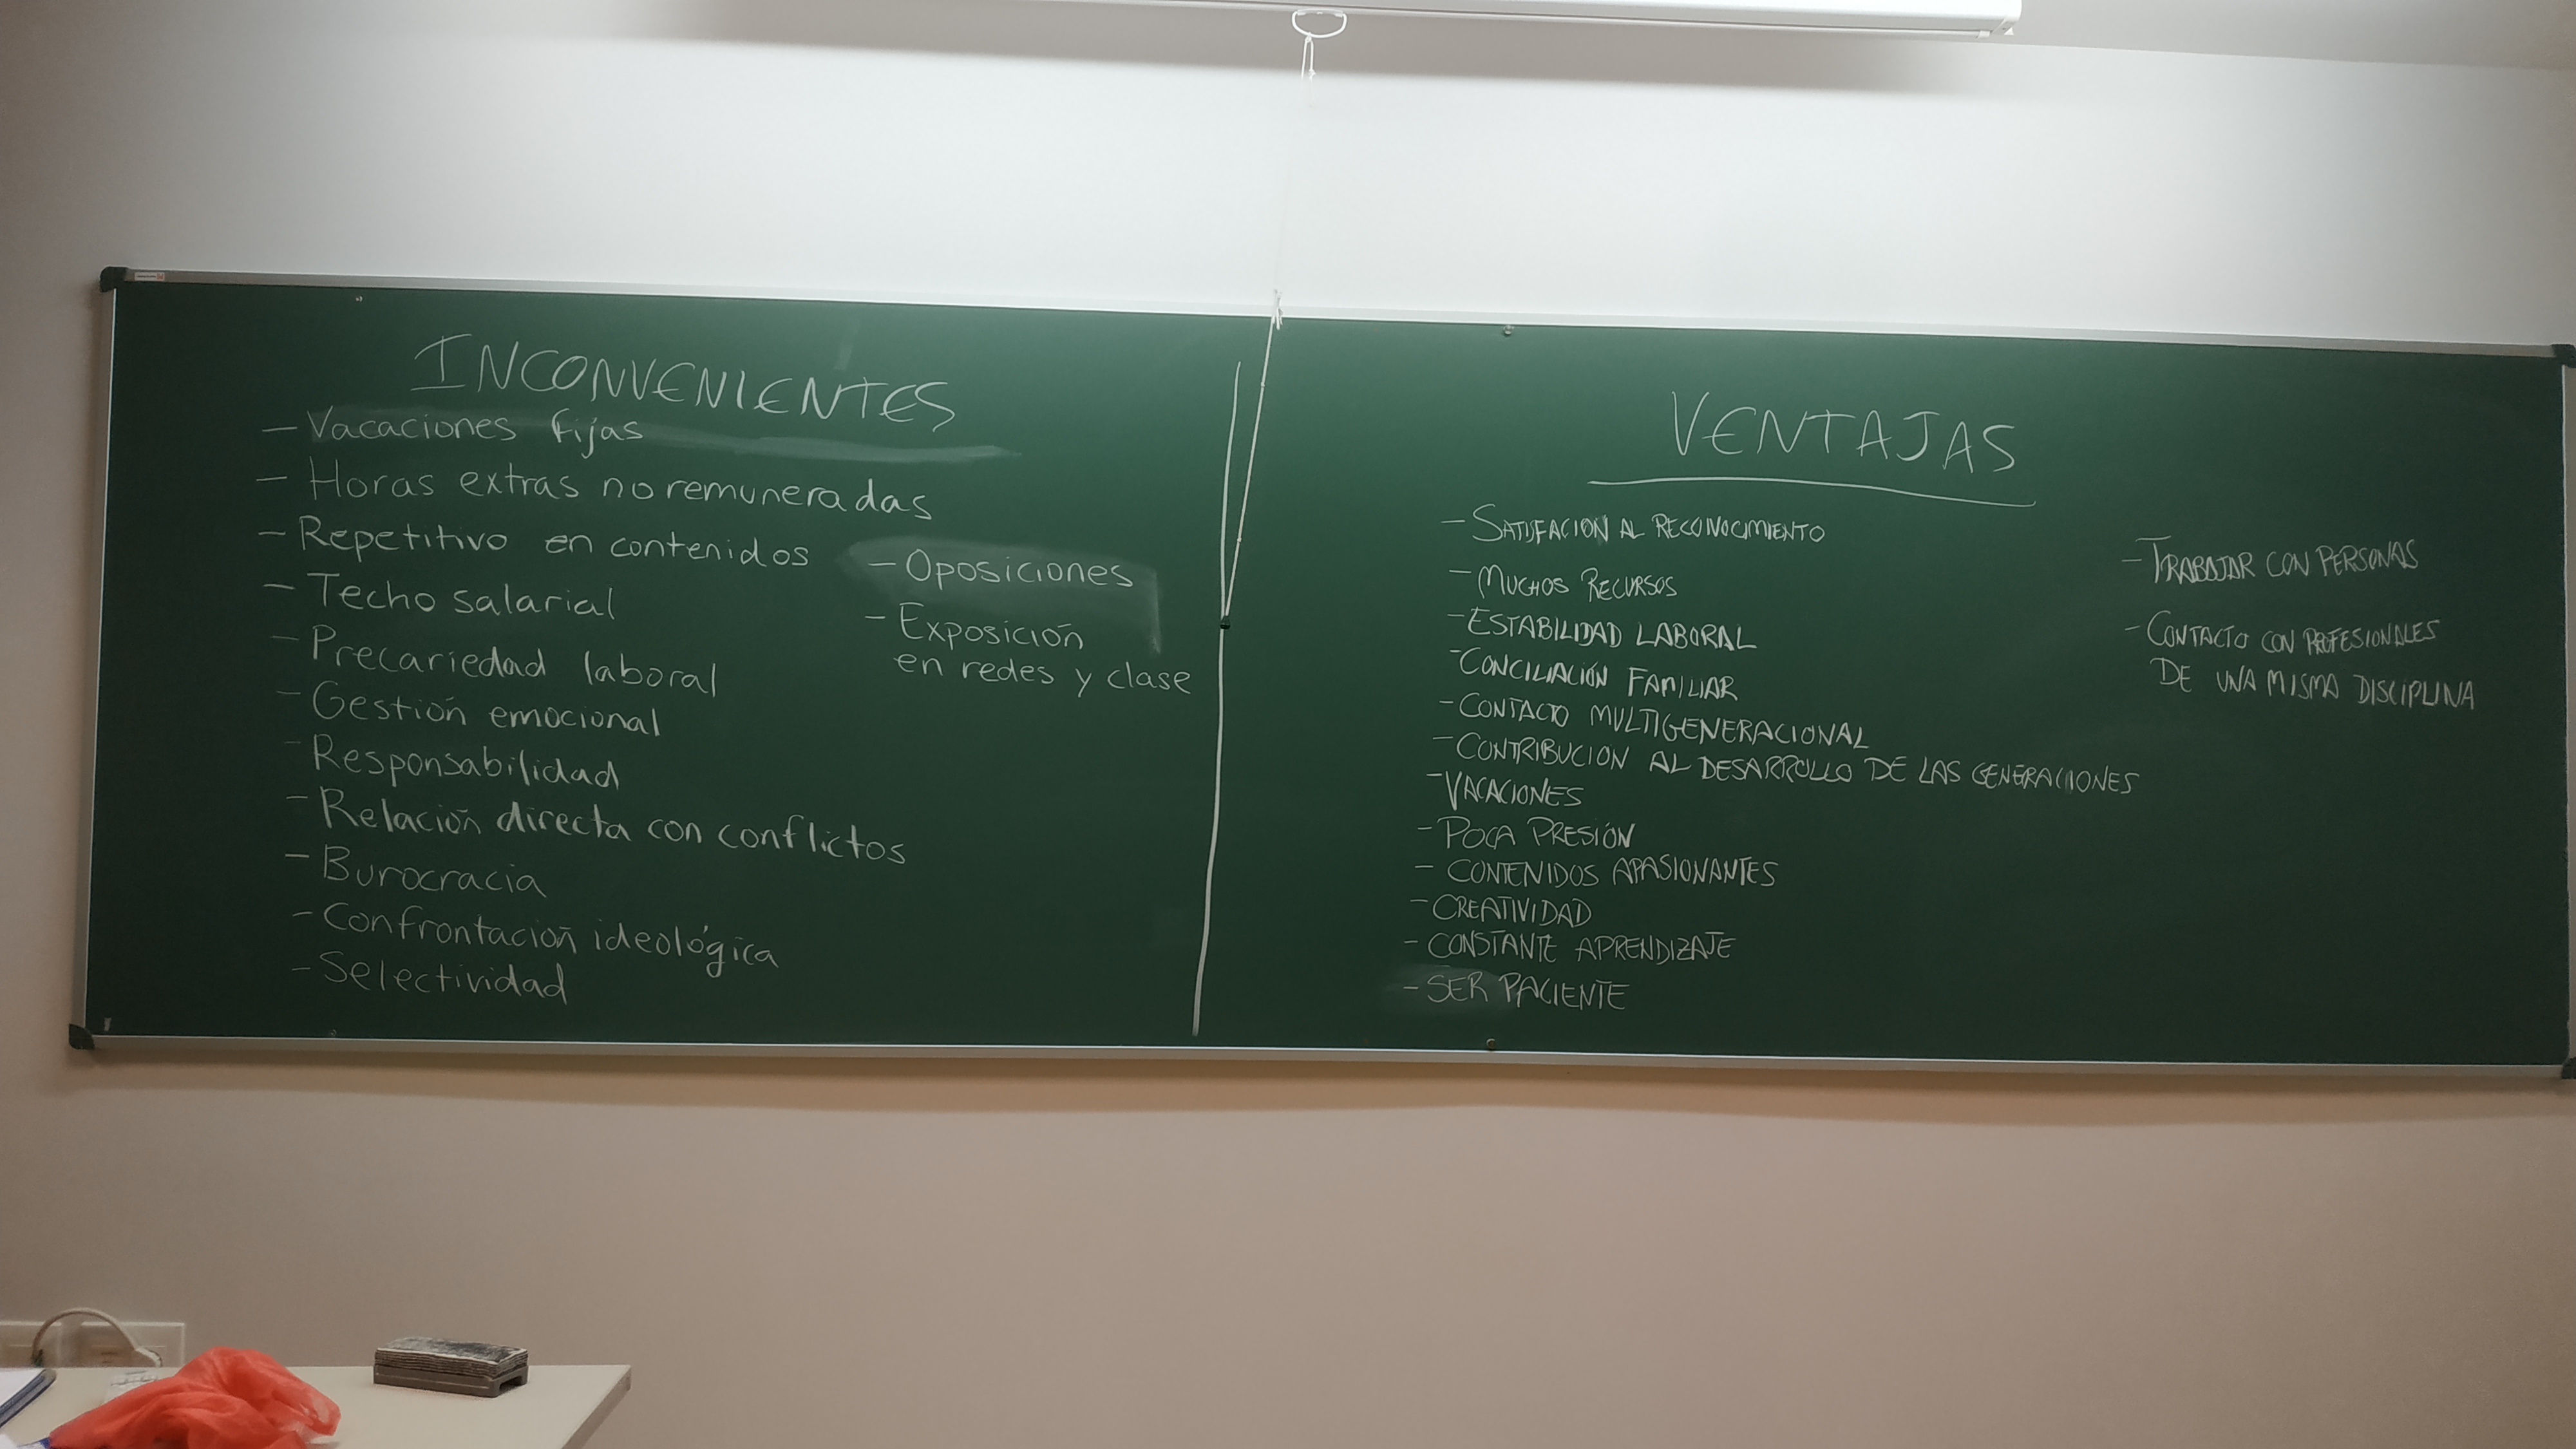 INCONVENIENTES
- Vacaciones fijas
- Horas extras no remuneradas
- Repetitivo en contenidos
- Techo salarial
- Precariedad laboral
- Gestión emocional
- Responsabilidad
- Relación directa con conflictos
- Burocracia
- Confrontación ideológica
- Selectividad
- Oposiciones
- Exposición
en redes y clase
VENTAJAS
- SATISFACION AL RECONOCIMIENTO
- MUCHOS RECURSOS
- ESTABILIDAD LABORAL
- CONCILIACIÓN FAMILIAR
- CONTACTO MULTIGENERACIONAL
- CONTRIBUCION AL DESARROLLO DE LAS GENERACIONES
- VACACIONES
- POCA PRESIÓN
- CONTENIDOS APASIONANTES
- CREATIVIDAD
- CONSTANTE APRENDIZAJE
- SER PACIENTE
- TRABAJAR CON PERSONAS
- CONTACTO CON PROFESIONALES
DE UNA MISMA DISCIPLINA